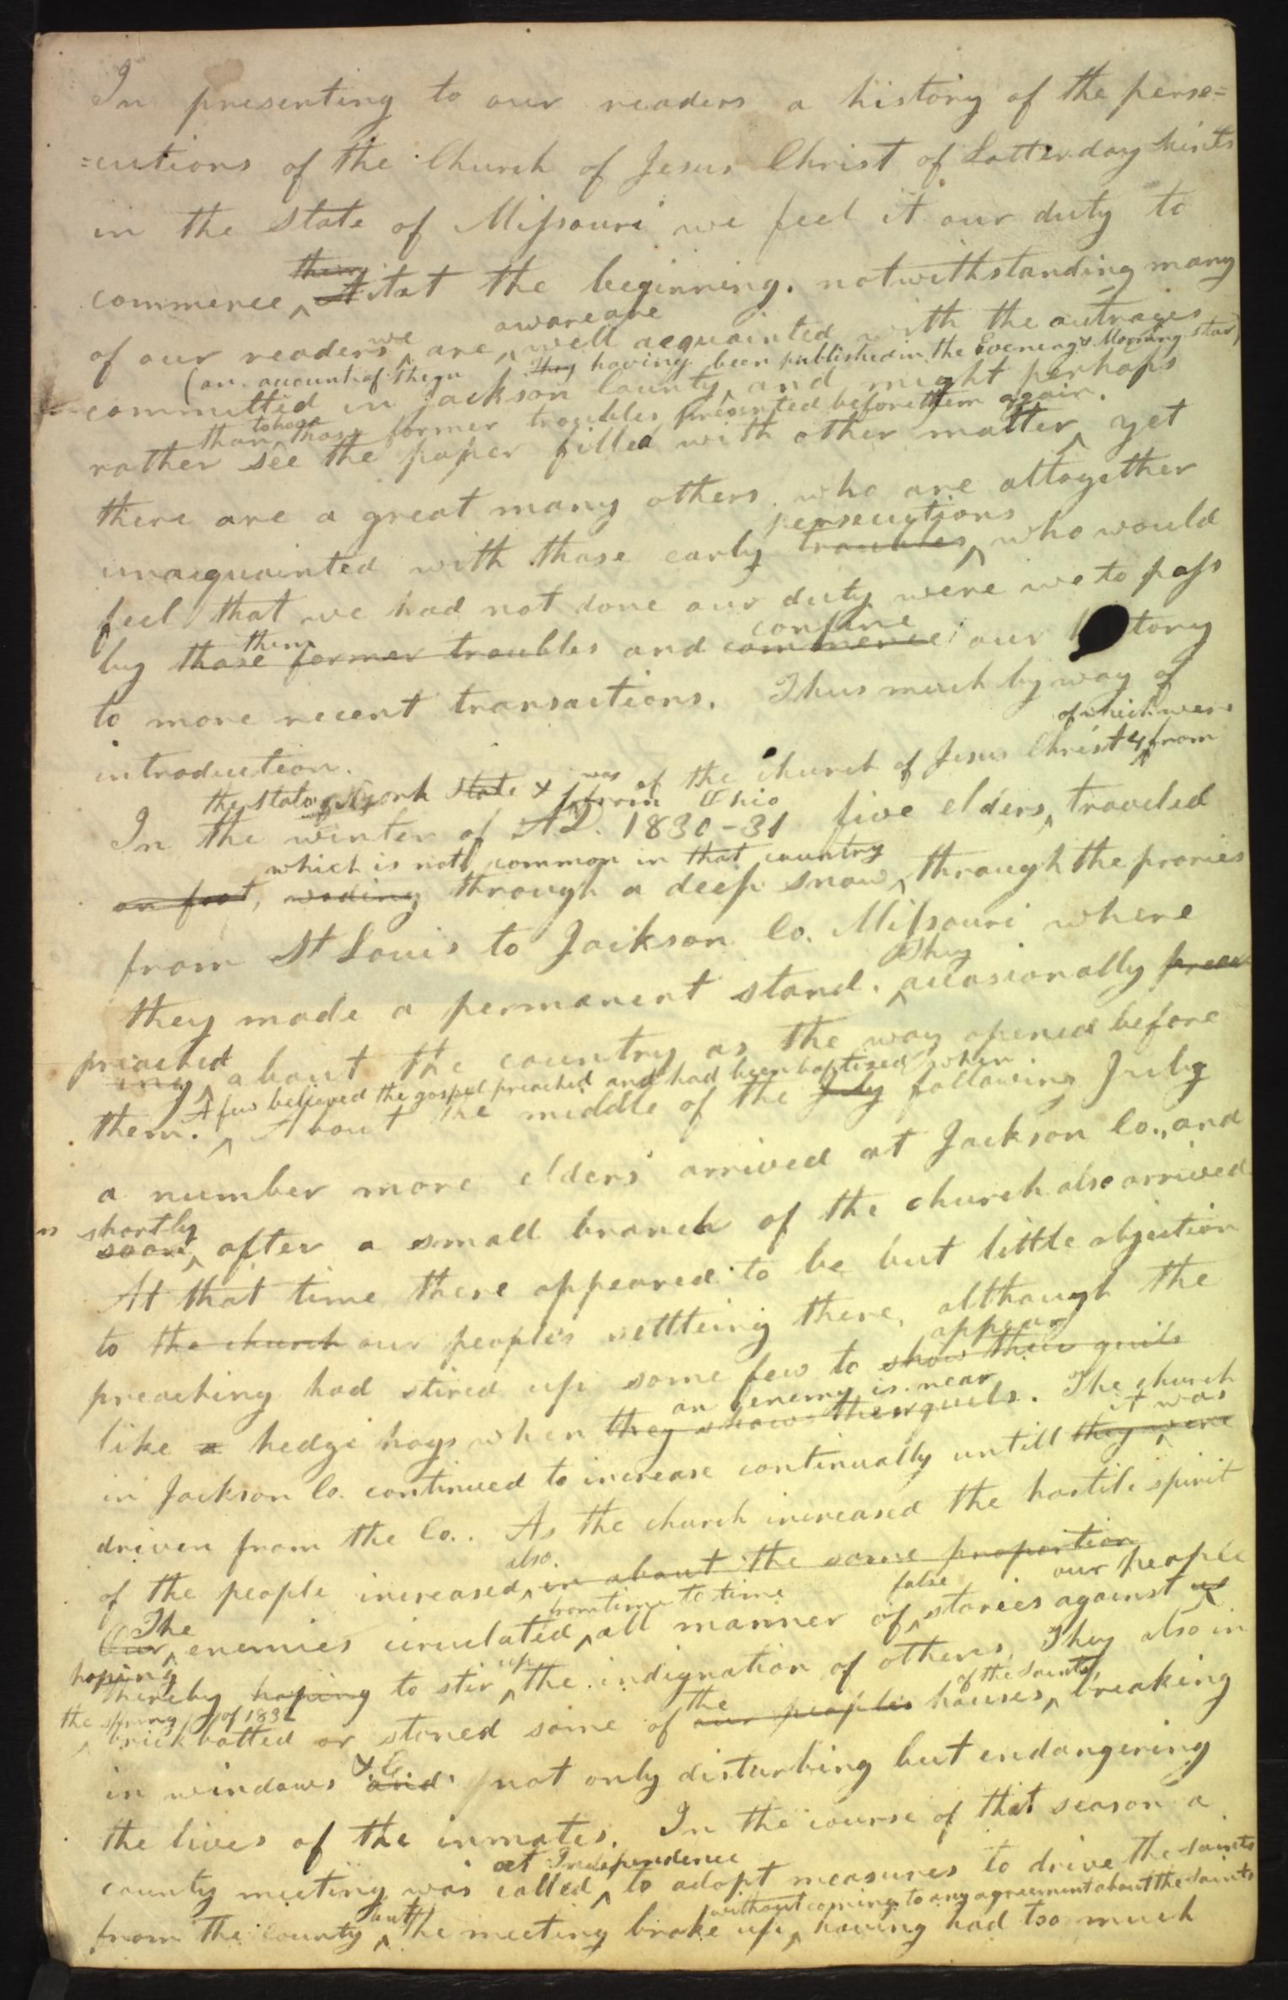 In presenting to our readers a history of the perse=
=cutions of the Church of Jesus Christ of Latter day Saints
in the State of Missouri we feel it our duty to
them
commence it at the beginning. notwithstanding many
we aware are
of our readers are well acquainted with the outrages
(an account of them they having been published in the Evening & Morning star)
committed in Jackson County, and might perhaps
than to have those former troubles presented before them again.
rather see the paper filled with other matter, yet
there are a great many others who are altogether
persecutions
unacquainted with those early troubles, who would
feel that we had not done our duty were we to pass
them confine
by those former troubles and commence our tory
to more recent transactions. Thus much by way of
introduction.
of which were
the state of york state & was from Ohio of the church of Jesus Christ 4 from
In the winter of AD. 1830-31 five elders, traveled
which is not common in that country
on foot, wading through a deep snow, through the praries
from St Louis to Jackson Co. Missouri where
They
they made a permanent stand. occasionally preac
preached
ing about the country as the way opened before
A few believed the gospel preached and had been baptised when
them. About the middle of the July following July
a number more elders arrived at Jackson Co., and
shortly
soon, after a small branch of the church also arrived
At that time there appeared to be but little objection
to the church our peoples settleing there, although the
appear
preaching had stired up some few to show their quils
an enemy is near
like a hedge hogs when they show their quils. The church
it was
in Jackson Co. continued to increase continually untill they were
driven from the Co.. As the church increased the hostile spirit
also
of the people increased, in about the same proportion
The from time to time false our people
Our, enemies circulated, all manner of stories against us
hoping up
thereby hoping to stir the indignation of others. They also in
the spring of 1832 the of the Saints,
brickbatted or stoned some of our peoples houses, breaking
&c
in windows and not only disturbing but endangering
the lives of the inmates. In the course of that season a
at Independence
county meeting was called, to adopt measures to drive the saints
but without coming to any agreement about the saints
from the county the meeting broke up, having had too much